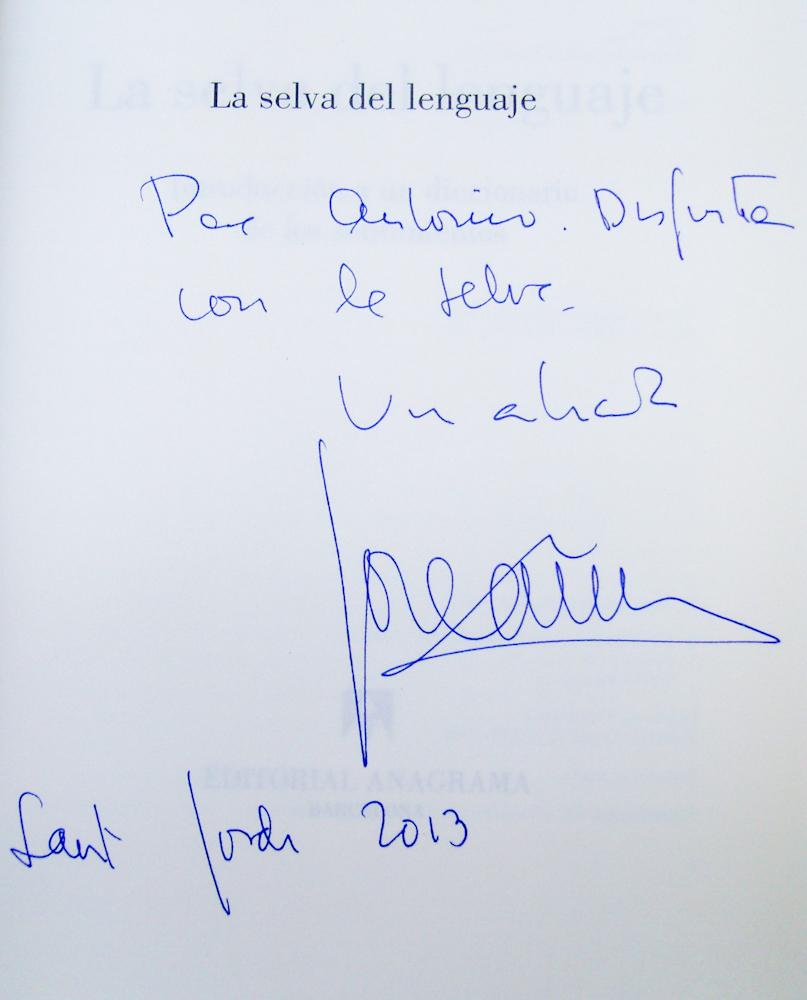 La selva del lenguaje
Para Antonio. Disfruta
con la selva.
Un abrazo
Sant Jordi 2013
EDITORIAL ANAGRAMA
BARCELONA